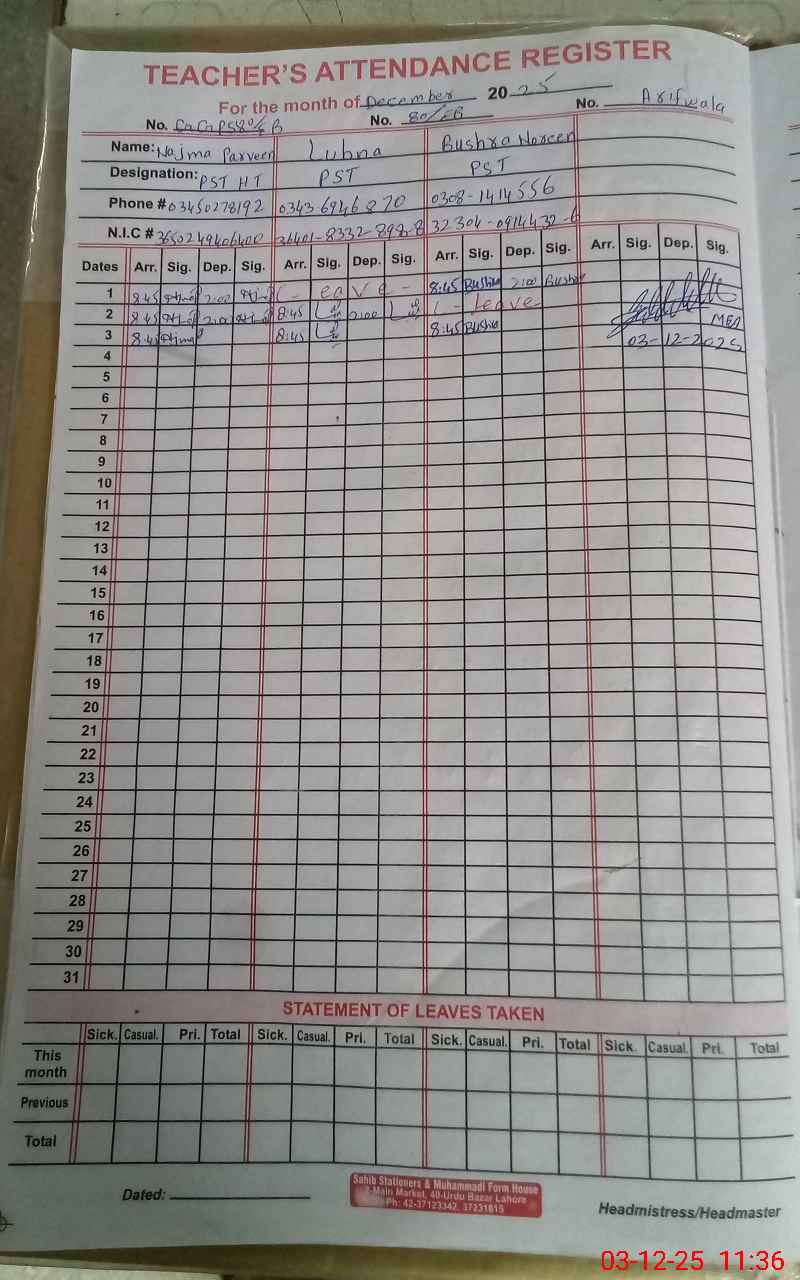 TEACHER'S ATTENDANCE REGISTER
For the month of December 2025
No. GGPS 80/EB No. 80/EB No. Arifwala
Name: Najma Parveen Lubna Bushra Noreen
Designation: PST HT PST PST
Phone # 03450278192 0343-6946870 0308-1414556
N.I.C # 3650249406400 36401-8332-898-8 32304-0914432-6
Dates Arr. Sig. Dep. Sig. Arr. Sig. Dep. Sig. Arr. Sig. Dep. Sig. Arr. Sig. Dep. Sig.
1 8:45 2:00 (- eave - 8:45 Bushra 2:00 Bushra
2 8:45 2:00 8:45 2:00 (- Leave-
3 8:45 8:45 8:45 Bushra MEA
03-12-2025
4
5
6
7
8
9
10
11
12
13
14
15
16
17
18
19
20
21
22
23
24
25
26
27
28
29
30
31
STATEMENT OF LEAVES TAKEN
Sick. Casual. Pri. Total Sick. Casual. Pri. Total Sick. Casual. Pri. Total Sick. Casual. Pri. Total
This month
Previous
Total
Dated:
Sahib Stationers & Muhammadi Form House
2-Main Market, 40-Urdu Bazar Lahore
Ph: 42-37123342, 37231615
Headmistress/Headmaster
03-12-25 11:36